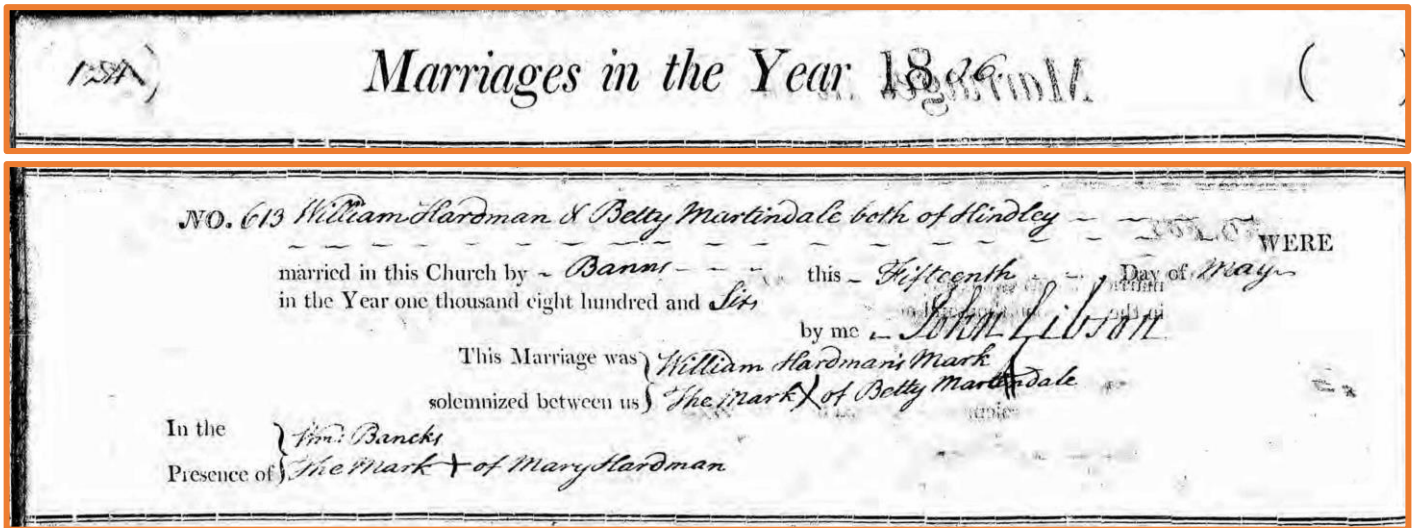 Marriages in the Year 1806.
NO. 613 William Hardman & Betty Martindale both of Hindley
WERE
married in this Church by - Banns - - - this - Fifteenth - - Day of May
in the Year one thousand eight hundred and Six
by me - John Gibson
This Marriage was } William Hardman's Mark
solemnized between us } The Mark X of Betty Martindale
In the } Wm: Bancks
Presence of } The Mark + of Mary Hardman